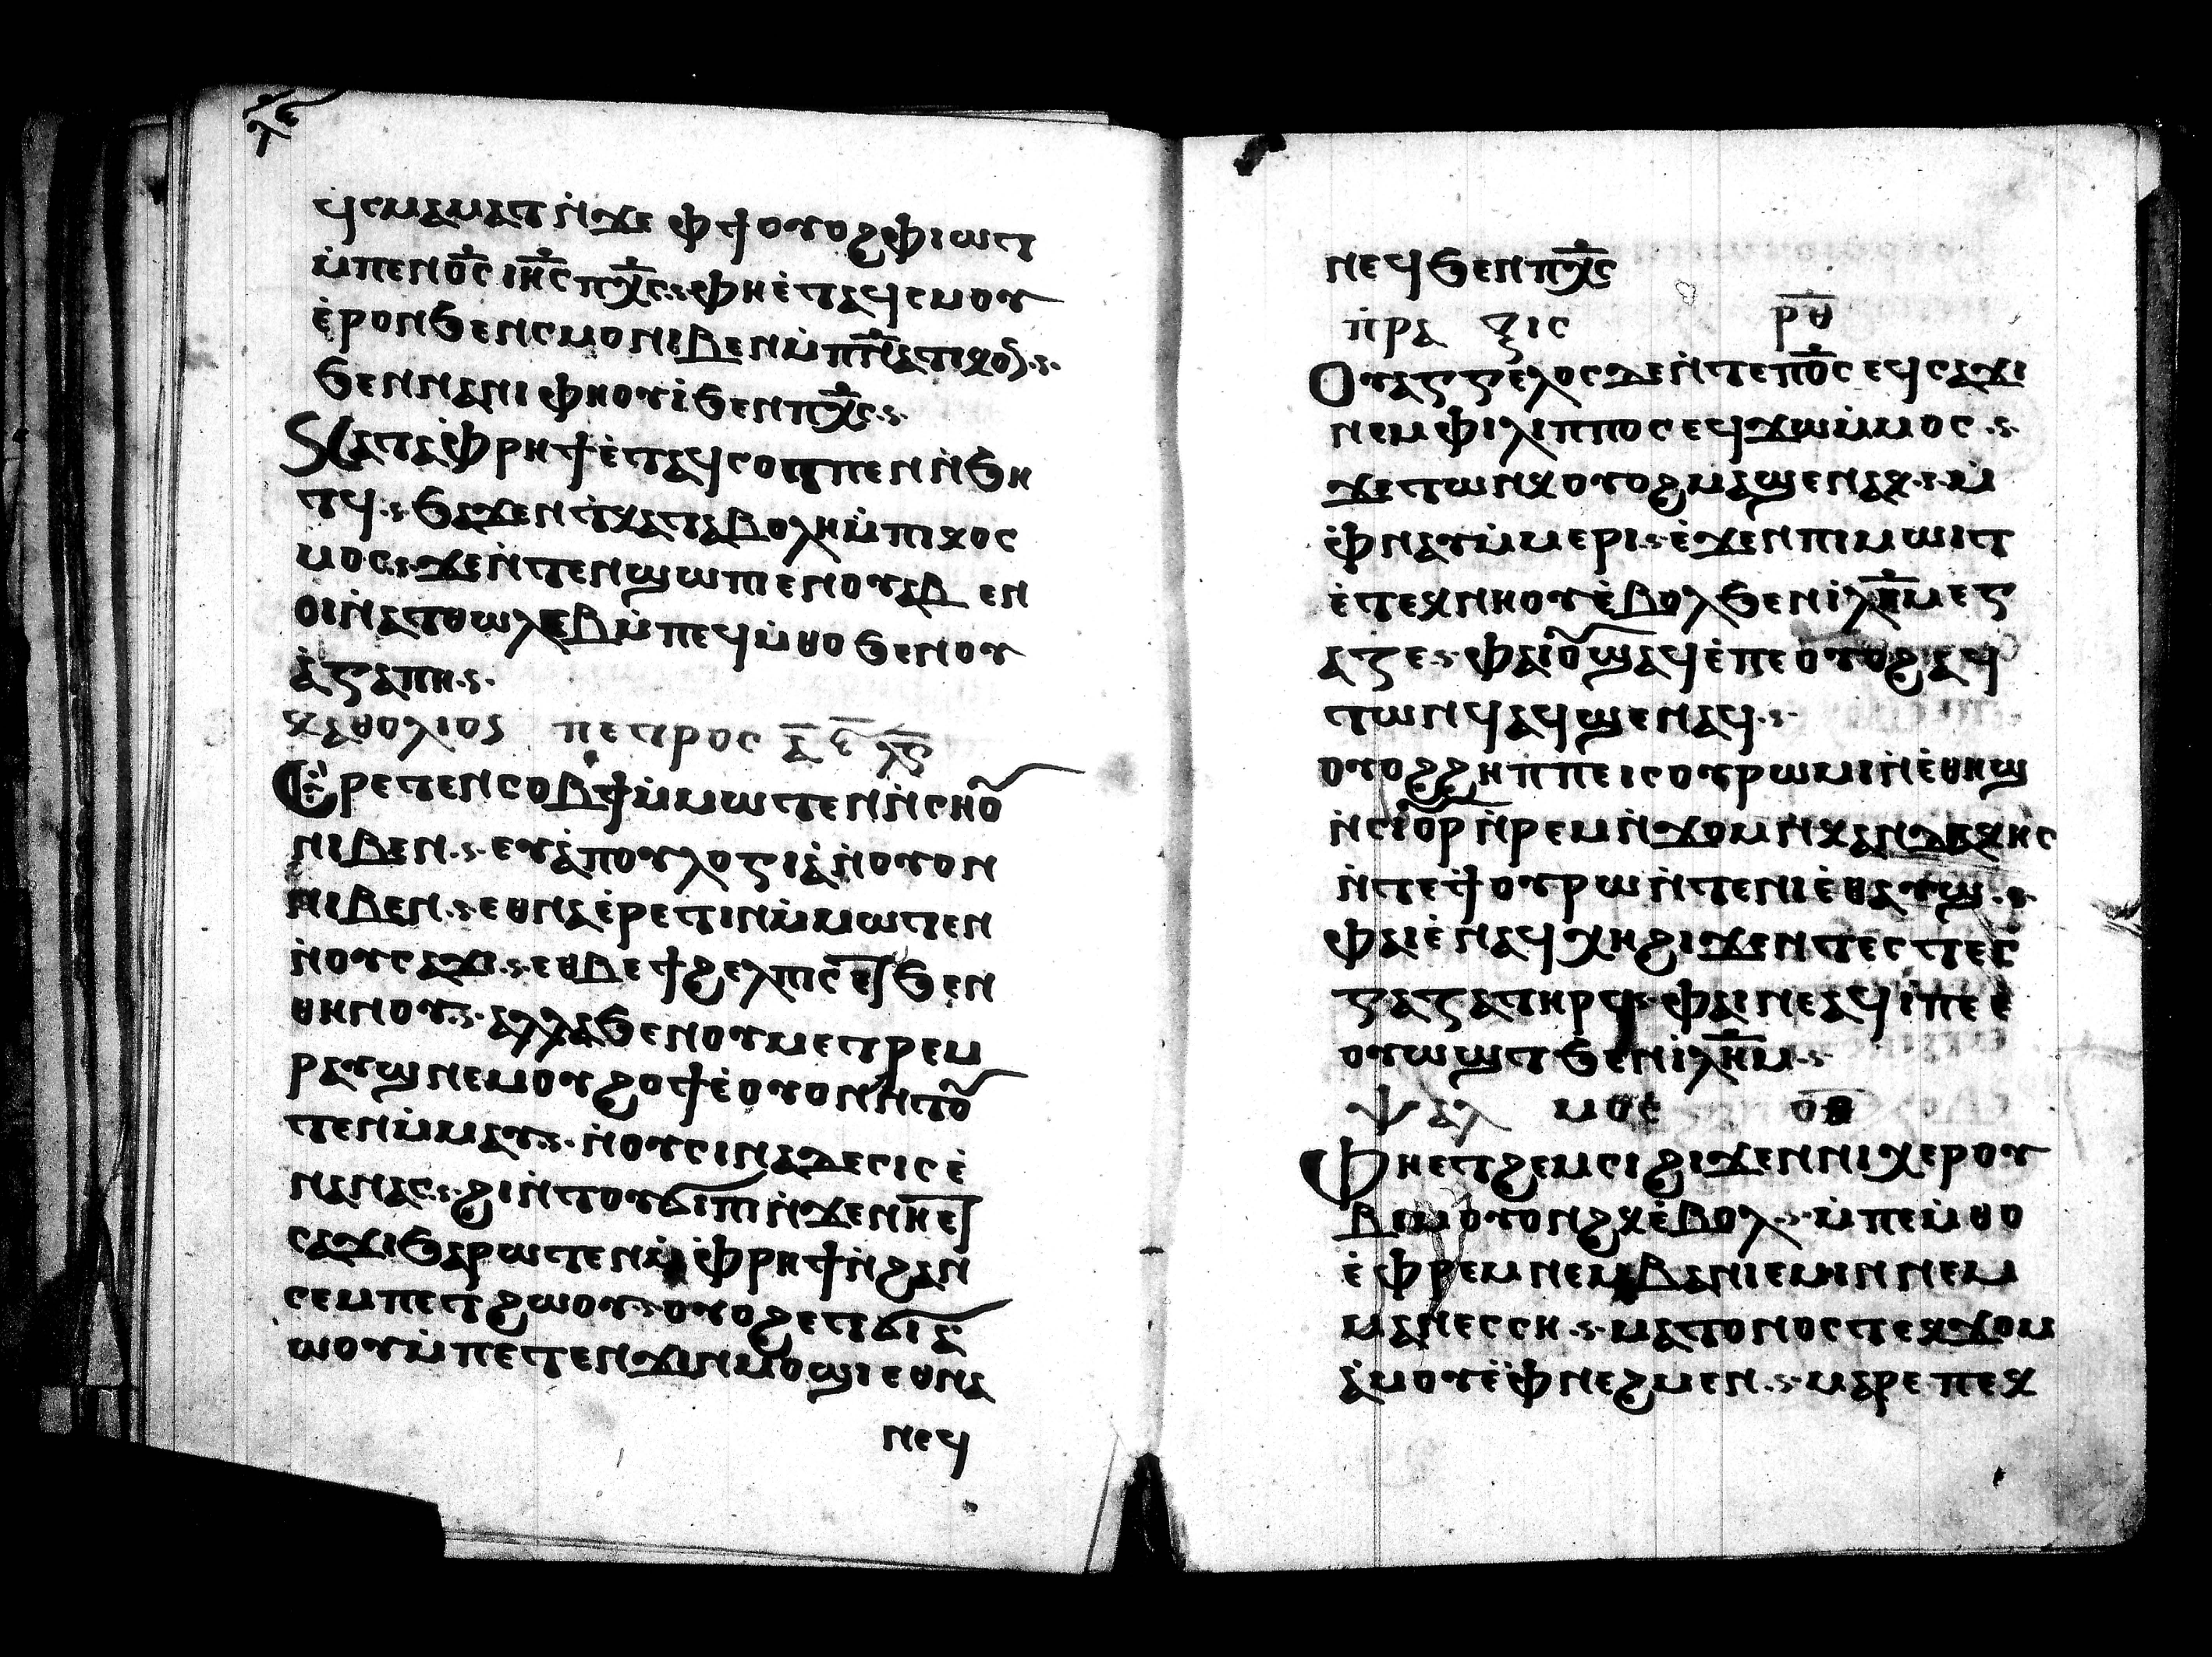 ϥⲥⲙⲁⲙⲁⲧ ⲛ̇ϫⲉ ⲫϯ ⲟⲩⲟϩ ⲫⲓⲱⲧ
ⲙ̇ⲡⲉⲛⲟ̅ⲥ̅ ⲓⲏ̅ⲥ̅ ⲡⲭ̅ⲥ̅·ⲋ· ⲫⲏⲉ̇ⲧⲁϥⲥⲙⲟⲩ
ⲉ̇ⲣⲟⲛ ϧⲉⲛ ⲥⲙⲟⲩ ⲛⲓⲃⲉⲛ ⲙ̇ⲡ̅ⲛ̅ⲁ̅ⲧⲓⲕⲟⲛ·ⲋ·
ϧⲉⲛ ⲛⲁⲛⲓⲫⲏⲟⲩⲓ̇ ϧⲉⲛ ⲡⲭ̅ⲥ̅·ⲋ·
Ⲕⲁⲧⲁ ⲫ̇ⲣⲏϯ ⲉ̇ⲧⲁϥⲥⲟⲧⲡⲉⲛ ⲛ̇ϧⲏ
ⲧϥ·ⲋ· ϧⲁϫⲉⲛ ⲧ̇ⲕⲁⲧⲁⲃⲟⲗⲏ ⲙ̇ⲡⲓⲕⲟⲥ
ⲙⲟⲥ·ⲋ· ϫⲉ ⲛ̇ⲧⲉⲛϣⲱⲡⲓ ⲉⲛⲟⲩⲁⲃ ⲉⲛ
ⲟⲓ ⲛ̇ⲁⲧⲑⲱⲗⲉⲃ ⲙ̇ⲡⲉϥⲙ̇ⲑⲟ ϧⲉⲛ ⲟⲩ
ⲁ̇ⲅⲁⲡⲏ·ⲋ·
ⲕⲁⲑⲟⲗⲓⲟⲥ ⲡⲉⲧⲣⲟⲥ ⲁ̅ ⲉ̅ ⲗ̅ⲋ̅
Ⲉⲣⲉⲧⲉⲛⲥⲟⲃϯ ⲙ̇ⲙⲱⲧⲉⲛ ⲛ̇ⲥⲏⲟⲩ
ⲛⲓⲃⲉⲛ·ⲋ· ⲉⲩⲁ̇ⲡⲟⲩⲗⲟⲅⲓⲁ̇ ⲛ̇ⲟⲩⲟⲛ
ⲛⲓⲃⲉⲛ·ⲋ· ⲉⲑⲛⲁⲉ̇ⲣⲉⲧⲓⲛ ⲙ̇ⲙⲱⲧⲉⲛ
ⲛ̇ⲟⲩⲥⲁϫⲓ·ⲋ· ⲉⲑⲃⲉ ϯϩⲉⲗⲡⲓⲥ ⲉⲧϧⲉⲛ
ⲑⲏⲛⲟⲩ·ⲋ· ⲁⲗⲗⲁ ϧⲉⲛ ⲟⲩⲙⲉⲧⲣⲉⲙ
ⲣⲁⲩϣ ⲛⲉⲙ ⲟⲩϩⲟϯ ⲉ̇ⲟⲩⲟⲛ ⲛ̇ⲧⲟⲩ
ⲧⲉⲛ ⲙ̇ⲙⲁⲩ·ⲋ· ⲛ̇ⲟⲩⲥⲓⲛⲁⲇⲉⲥⲓⲥ ⲉ̇
ⲛⲁⲛⲁⲥ·ⲋ· ϩⲓⲛ̇ⲧⲟⲩϭⲓϣⲓⲡⲓ ⲛ̇ϫⲉ ⲛⲏⲉⲧ
ⲥⲁϫⲓ ϧⲁⲣⲱⲧⲉⲛ ⲙ̇ⲫ̇ⲣⲏϯ ⲛ̇ϩⲁⲛ
ⲥⲉⲙⲡⲉⲧϩⲱⲟⲩ·ⲋ· ⲟⲩⲟϩ ⲉⲧϭⲓⲗⲁ
ⲱⲟⲩ ⲙ̇ⲡⲉⲧⲉⲛϫⲓⲛⲙⲟϣⲓ ⲉⲑⲛⲁ
ⲛⲉϥ
ⲛⲉϥ ϧⲉⲛ ⲡⲭ̅ⲥ̅
ⲡ̇ⲣⲁ ⲝⲓⲥ ⲣ̅ⲑ̅
Ⲟⲩⲁⲅⲅⲉⲗⲟⲥ ⲇⲉ ⲛ̇ⲧⲉ ⲡⲟ̅ⲥ̅ ⲉϥⲥⲁϫⲓ
ⲛⲉⲙ ⲫⲓⲗⲓⲡⲡⲟⲥ ⲉϥϫⲱ ⲙ̇ⲙⲟⲥ·ⲋ·
ϫⲉ ⲧⲱⲛⲕ ⲟⲩⲟϩ ⲙⲁϣⲉⲛⲁⲕ·ⲋ· ⲙ̇
ⲫ̇ⲛⲁⲩ ⲙ̇ⲙⲉⲣⲓ·ⲋ· ⲉ̇ϫⲉⲛ ⲡⲓⲙⲱⲓⲧ
ⲉ̇ⲧⲉⲭⲛⲏⲟⲩ ⲉ̇ⲃⲟⲗ ϧⲉⲛ ⲓ̇ⲗ̅ⲏ̅ⲙ ⲉⲅ
ⲁⲍⲉ·ⲋ· ⲫⲁⲓ ⲟⲩϣⲁϥⲉ̇ ⲡⲉ ⲟⲩⲟϩ ⲁϥ
ⲧⲱⲛϥ ⲁϥϣⲉⲛⲁϥ·ⲋ·
ⲟⲩⲟϩ ϩⲏⲡⲡⲉ ⲓⲥ ⲟⲩⲣⲱⲙⲓ ⲛ̇ⲉ̇ⲑⲏϣ
ⲛ̇ⲥⲓⲟⲩⲣ ⲛ̇ⲣⲉⲙⲛ̇ϫⲟⲙ ⲛ̇ⲕⲁⲛⲇⲁⲕⲏⲥ
ⲛ̇ⲧⲉ ϯⲟⲩⲣⲱ ⲛ̇ⲧⲉ ⲛⲓⲉ̇ⲑⲁⲩϣ·ⲋ·
ⲫⲁⲓ ⲉ̇ⲛⲁϥⲭⲏ ϩⲓϫⲉⲛ ⲧⲉⲥⲧⲉⲥ
ⲅⲁⲍⲁ ⲧⲏⲣⲥ·ⲋ· ⲫⲁⲓ ⲛⲉ ⲁϥⲓ̇ ⲡⲉ ⲉ̇
ⲟⲩⲱϣⲧ ϧⲉⲛ ⲓ̇ⲗ̅ⲏ̅ⲙ·ⲋ·
ⲯⲁⲗ ⲙⲟⲥ ⲟⲑ
Ⲫⲏⲉⲧϩⲉⲙⲥⲓ ϩⲓϫⲉⲛ ⲛⲓⲭⲉⲣⲟⲩ
ⲃⲓⲙ ⲟⲩⲟⲛϩⲕ ⲉ̇ⲃⲟⲗ·ⲋ· ⲙ̇ⲡⲉⲙ̇ⲑⲟ
ⲉ̇ⲫ̇ⲣⲉⲙ ⲛⲉⲙ ⲃⲁⲛⲓⲉⲙⲓⲛ ⲛⲉⲙ
ⲙⲁⲛⲉⲥⲥⲏ·ⲋ· ⲙⲁⲧⲟⲩⲛⲟⲥ ⲧⲉⲕϫⲟⲙ
ⲁ̇ⲙⲟⲩ ⲉ̇ⲫ̇ⲛⲉϩⲙⲉⲛ·ⲋ· ⲙⲁⲣⲉ ⲡⲉⲕ